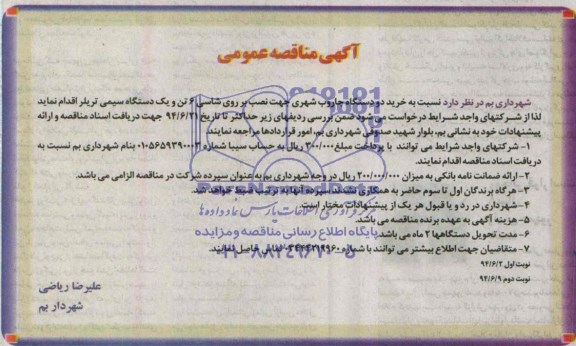 آگهی مناقصه عمومی
شهرداری بم در نظر دارد نسبت به خرید دو دستگاه جاروب شهری جهت نصب بر روی شاسی ۶ تن و یک دستگاه سیمی تریلر اقدام نماید
لذا از شرکتهای واجد شرایط درخواست می شود ضمن بررسی ردیفهای زیر حداکثر تا تاریخ ۹۴/۶/۲۱ جهت دریافت اسناد مناقصه و ارائه
پیشنهادات خود به نشانی بم، بلوار شهید صدوقی شهرداری بم، امور قراردادها مراجعه نمایند.
۱- شرکتهای واجد شرایط می توانند با پرداخت مبلغ ۳۰۰/۰۰۰ ریال به حساب سیبا شماره ۰۱۰۵۶۵۹۳۹۰۰۰۳ بنام شهرداری بم نسبت به
دریافت اسناد مناقصه اقدام نمایند.
۲- ارائه ضمانت نامه بانکی به میزان ۲۰۰/۰۰۰/۰۰۰ ریال در وجه شهرداری بم به عنوان سپرده شرکت در مناقصه الزامی می باشد.
۳- هرگاه برندگان اول تا سوم حاضر به همکاری نشدند سپرده آنها به ترتیب ضبط خواهد شد.
۴- شهرداری در رد و یا قبول هر یک از پیشنهادات مختار است.
۵- هزینه آگهی به عهده برنده مناقصه می باشد.
۶- مدت تحویل دستگاهها ۲ ماه می باشد.
۷- متقاضیان جهت اطلاع بیشتر می توانند با شماره تماس حاصل نمایند.
نوبت اول ۹۴/۶/۲
نوبت دوم ۹۴/۶/۹
علیرضا ریاضی
شهردار بم
پایگاه اطلاع رسانی مناقصه و مزایده